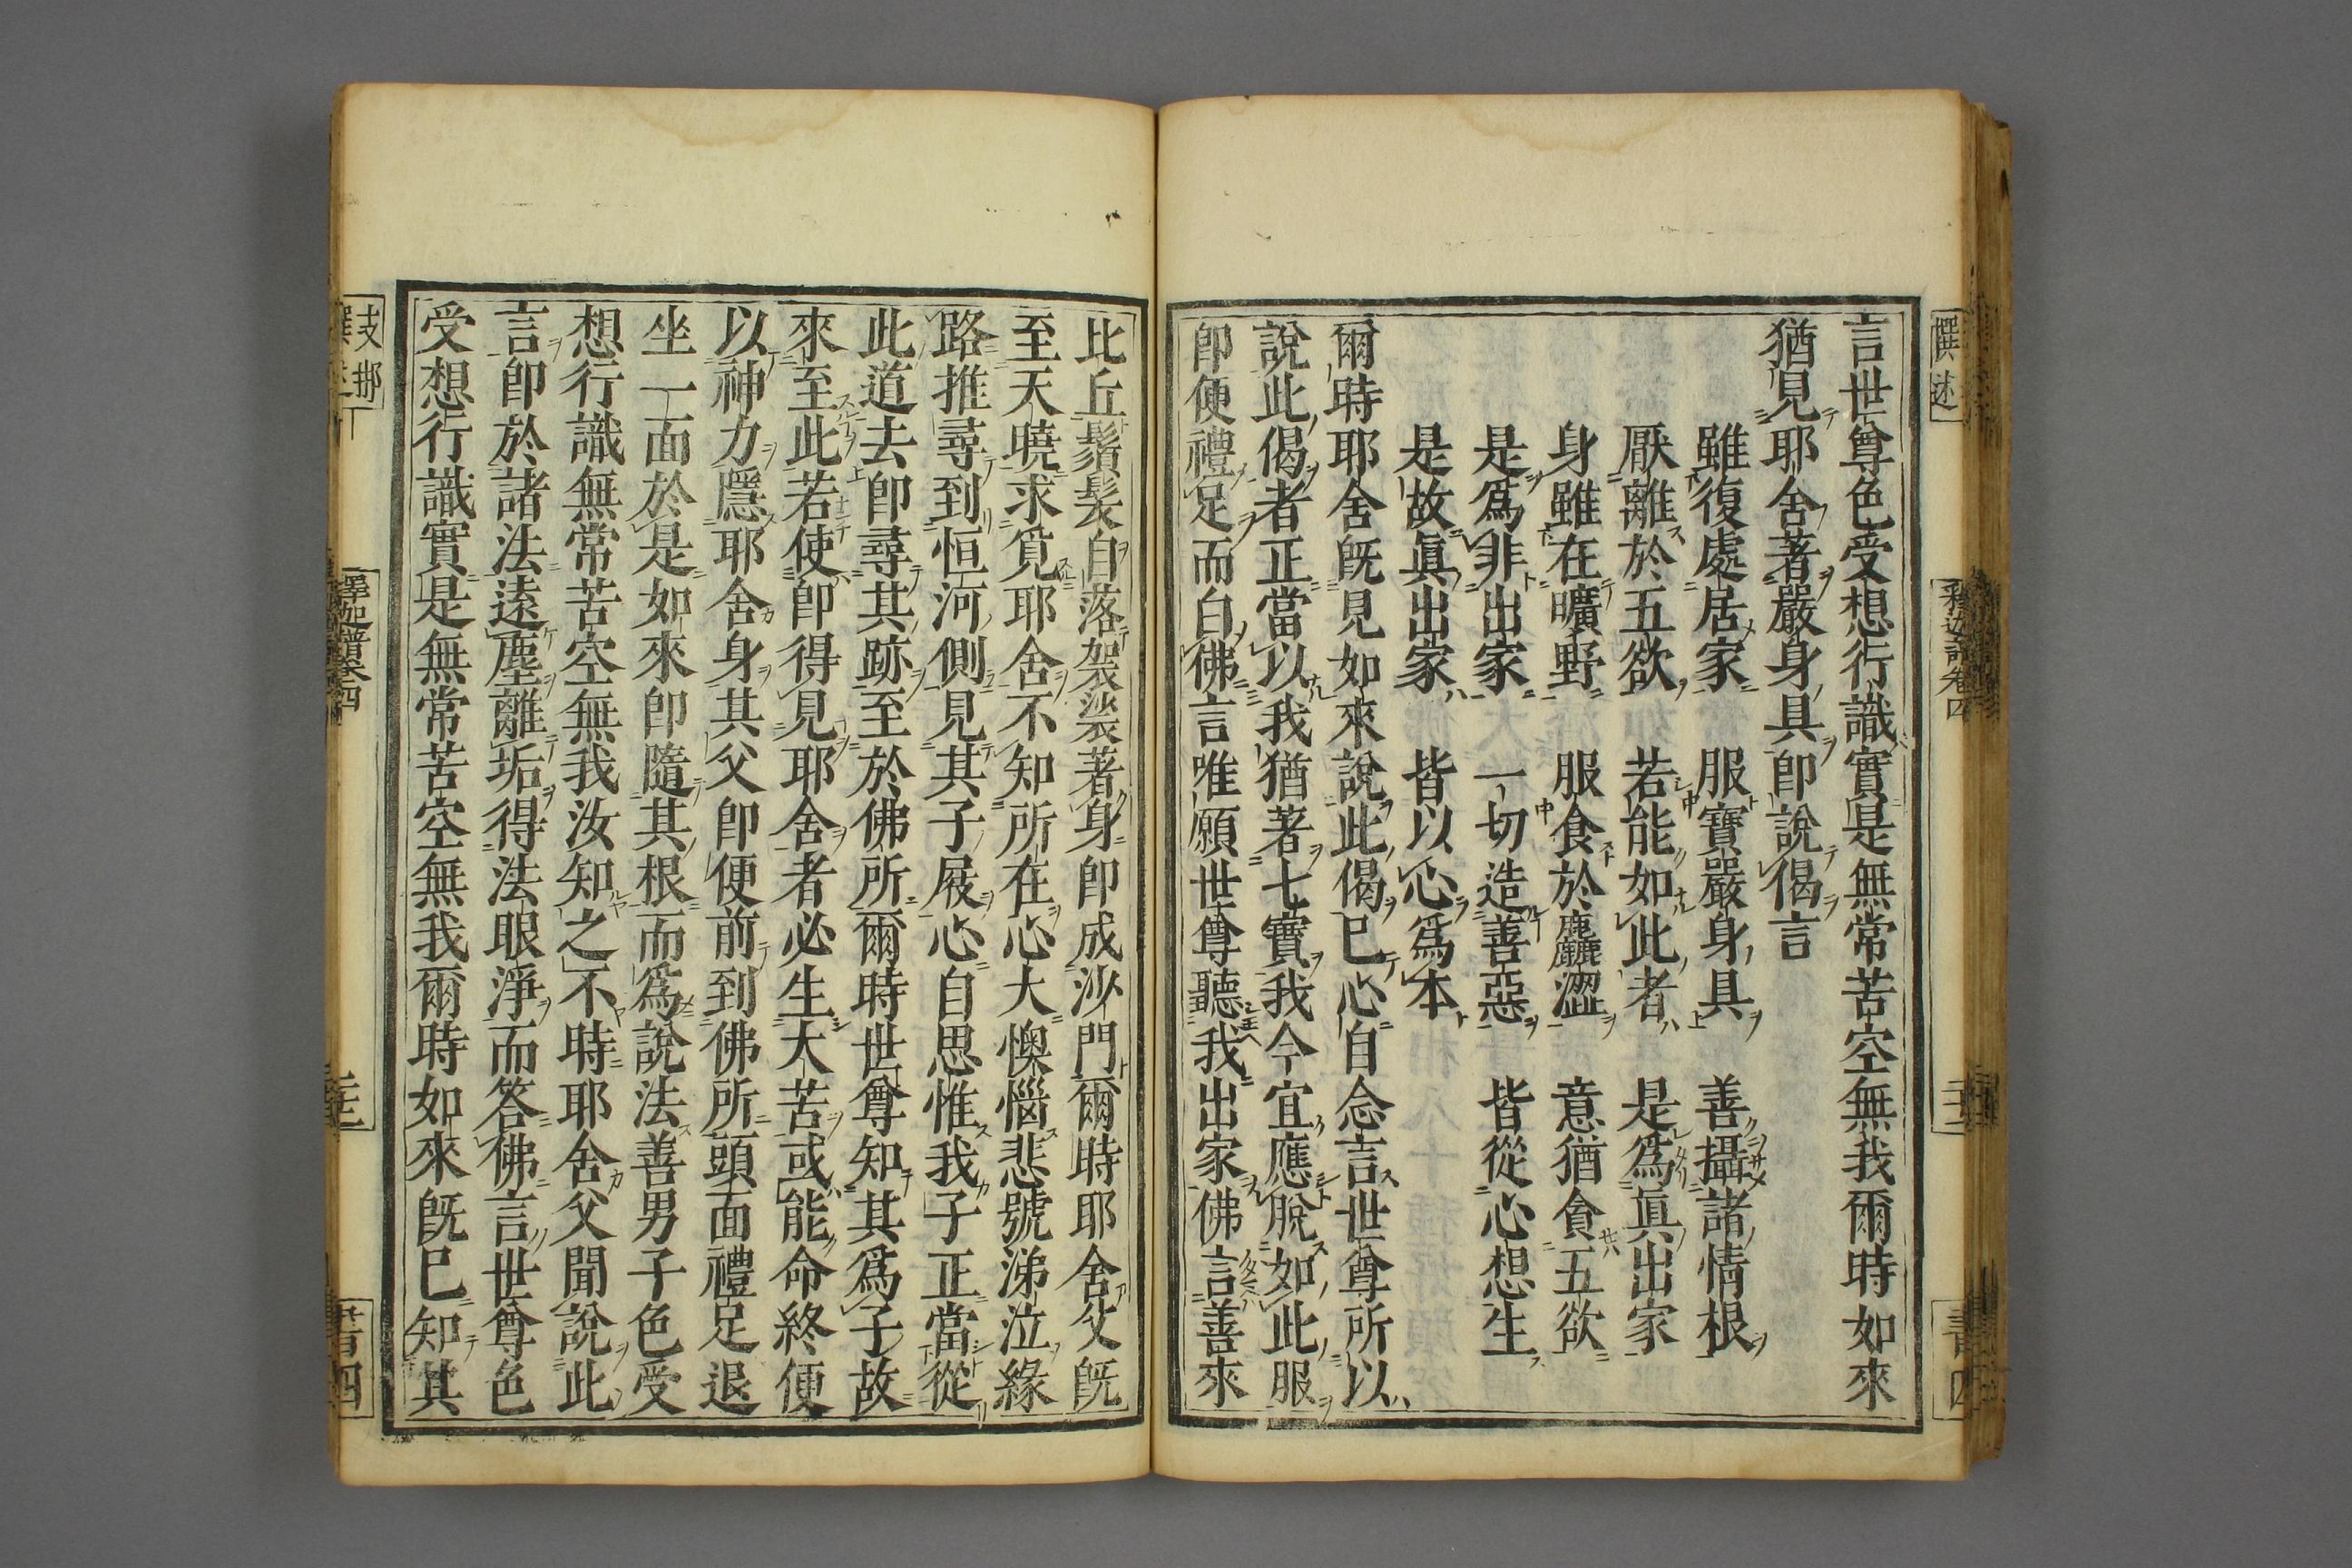 言世尊色受想行識實是無常苦空無我爾時如來
猶見耶舍著嚴身具卽說偈言
雖復處居家　服寶嚴身具　善攝諸情根
厭離於五欲　若能如此者　是爲眞出家
身雖在曠野　服食於麤澀　意猶貪五欲
是爲非出家　一切造善惡　皆從心想生
是故眞出家　皆以心爲本
爾時耶舍旣見如來說此偈已心自念言世尊所以
說此偈者正當以我猶著七寶我今宜應脫如此服
卽便禮足而白佛言唯願世尊聽我出家佛言善來
比丘鬚髮自落袈裟著身卽成沙門爾時耶舍父旣
至天曉求覓耶舍不知所在心大懊惱悲號涕泣緣
路推尋到恒河側見其子屐心自思惟我子正當從
此道去卽尋其跡至於佛所爾時世尊知其爲子故
來至此若使卽得見耶舍者必生大苦或能命終便
以神力隱耶舍身其父卽便前到佛所頭面禮足退
坐一面於是如來卽隨其根而爲說法善男子色受
想行識無常苦空無我汝知之不時耶舍父聞說此
言卽於諸法遠塵離垢得法眼淨而答佛言世尊色
受想行識實是無常苦空無我爾時如來旣已知其
支那
撰述
釋迦譜卷四